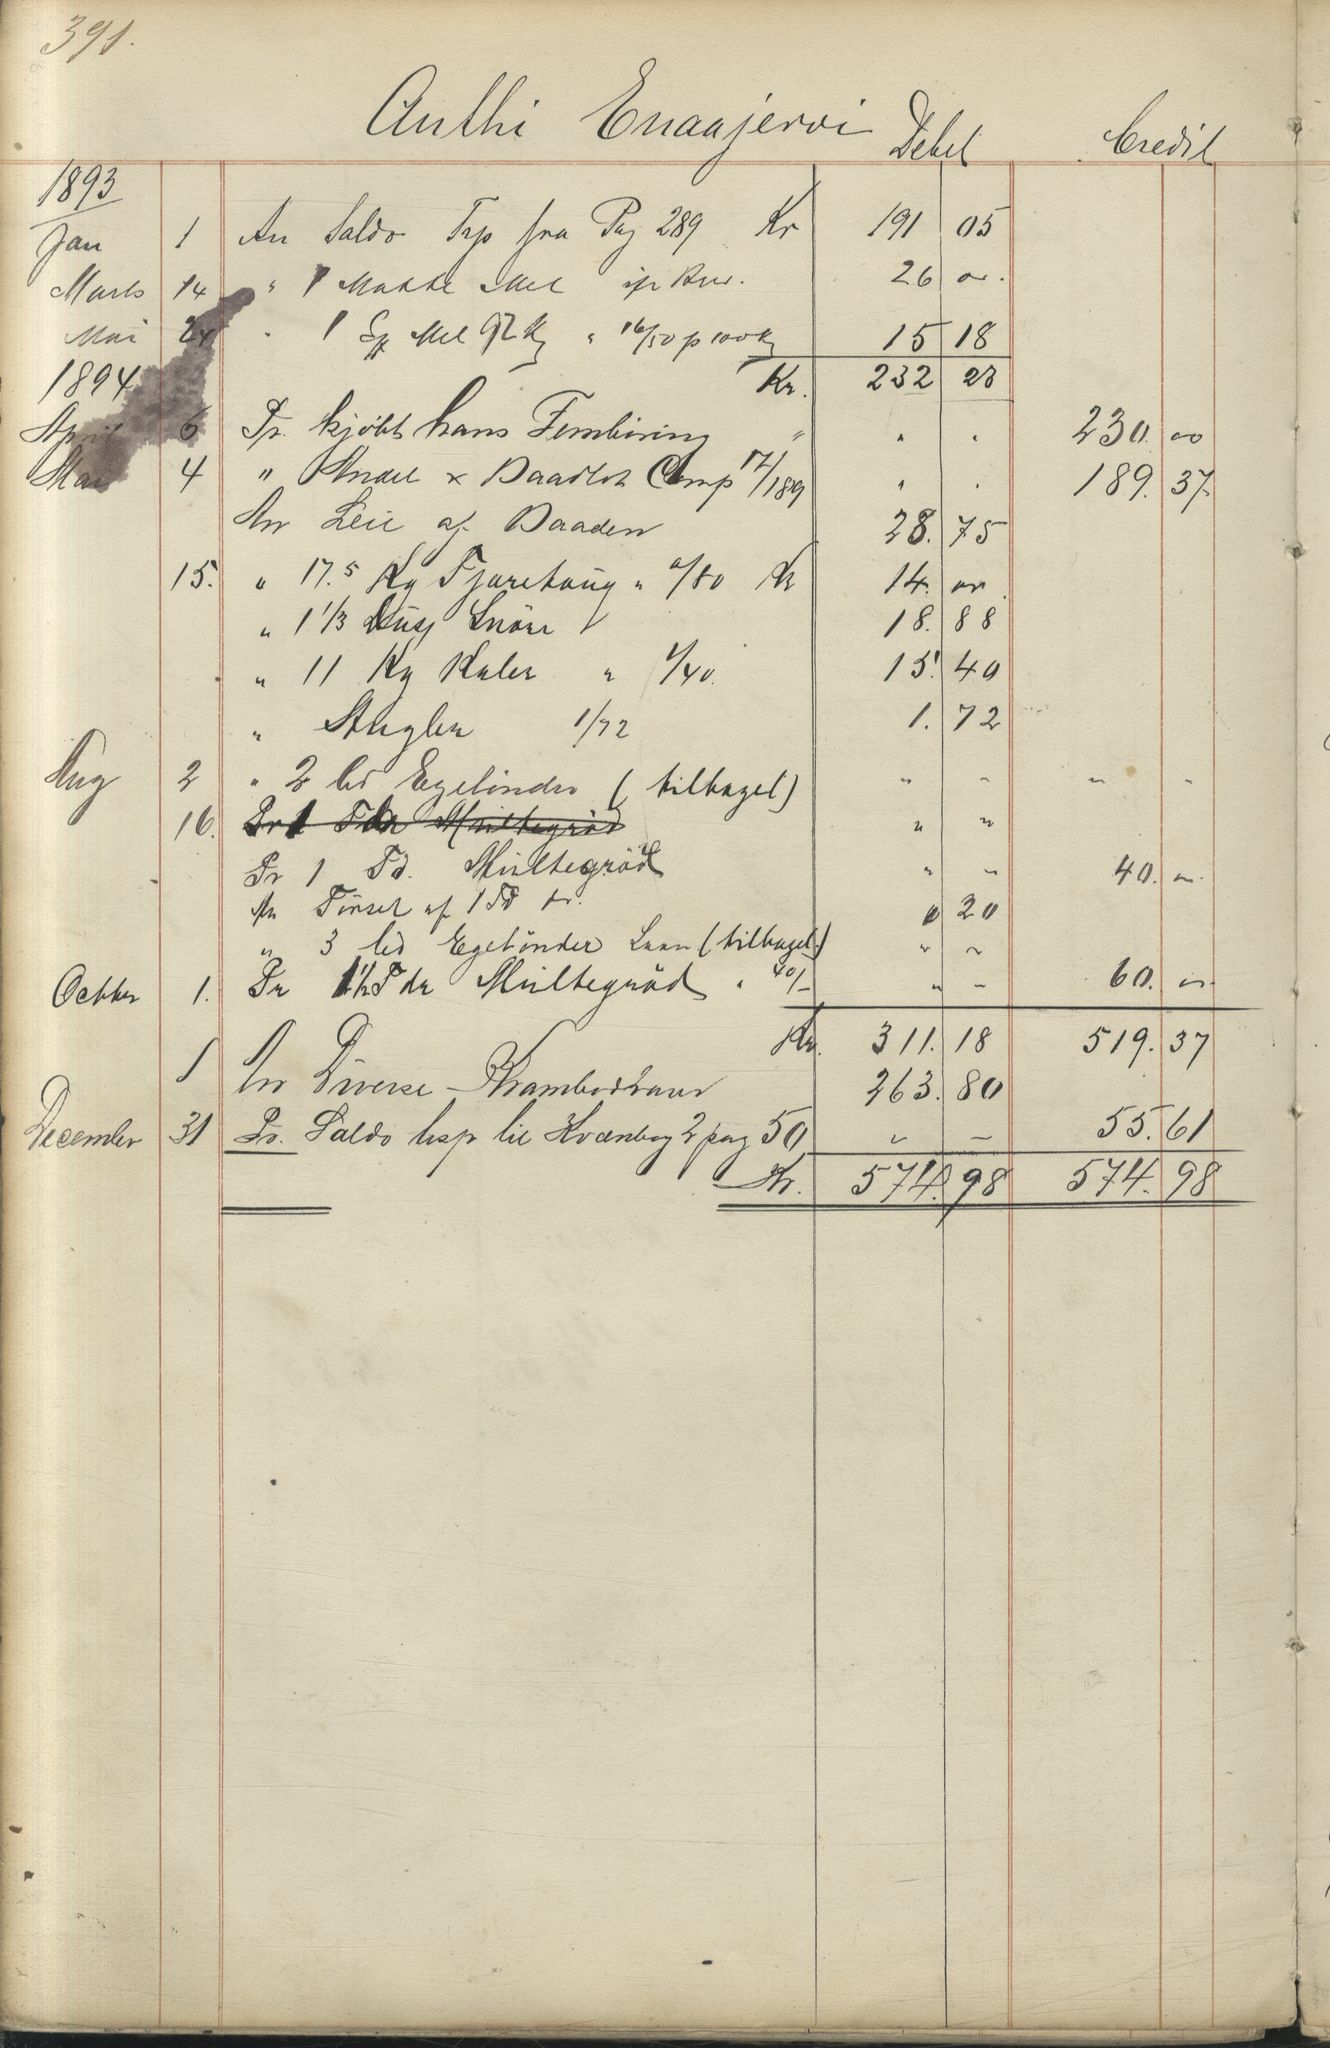 391.
Anthi Enaajervi Debet Credit
1893
Jan 1 An Saldo Trp fra Pag 289 Kr 191 05
Marts 14 " 1 Matte Mel 26 oo.
Mai 24 " 1 Sk Mel 92 Kg " 16/50 p 100 Kg 15 18
1894 Kr. 232 23
April 6 Pr. kjöbt hans Femböring " " " 230. oo
Mai 4 " Andel Baadlot Comp 17/189 " " 189. 37
An Leie af Baaden 28. 75
15. " 17.5 Kg Tjæretaug " "/80 Kr 14. oo
" 1 1/3 Dus Snöre 18. 88
" 11 Kg Kaler " 1/40. 15. 40
" Angler 1/72 1. 72
Aug 2 " 2 led Egetönder (tilbagel) " " " "
16. Pr 1 Tdr Multegröd " "
Pr 1 Td. Multegröd " " 40. "
An Tönsel af 1 Td 0 20
" 3 led Egetönder Laan (tilbagel.) " "
Octber 1. Pr 1 1/2 Tdr Multegröd " 40/- " - 60. "
Kr. 311. 18 519. 37
An Diverse Krambodvarer 263. 80
December 31 Pr. Saldo trsp til Kvænbog 2 pag 50 " - 55. 61
Kr. 574. 98 574. 98